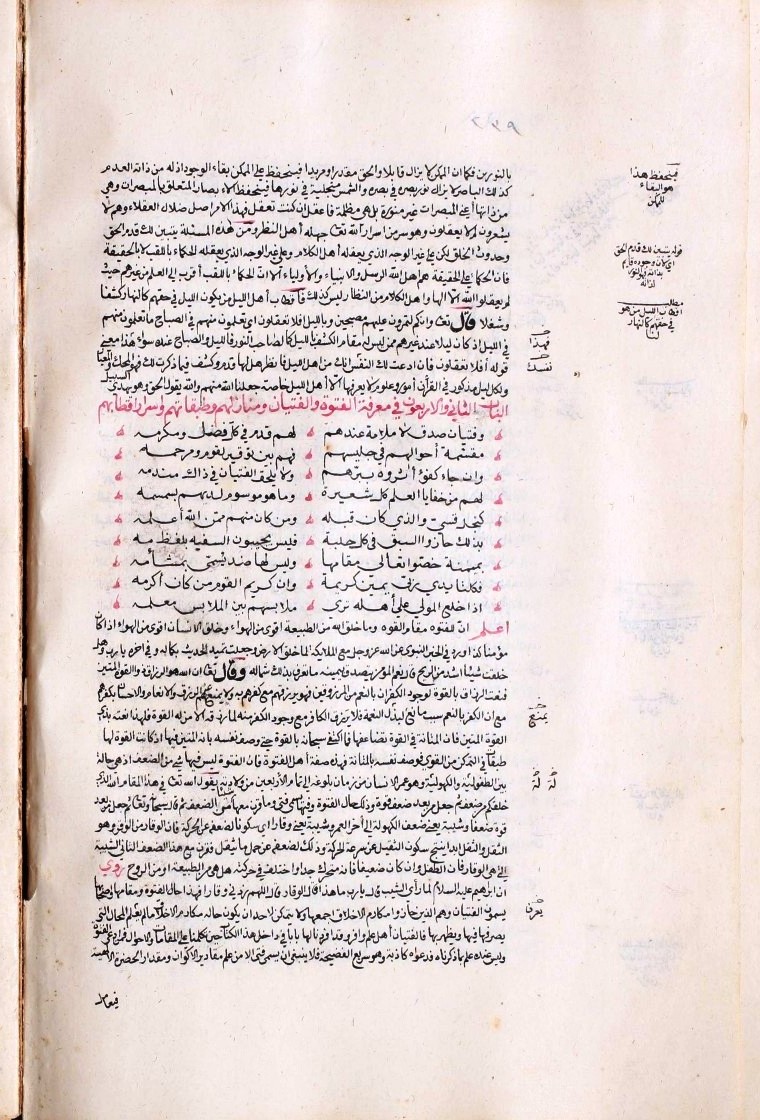 ٢٣٩
بالنورين فكما ان الممكن لا يزال قابلا والحق مقدرا ومريدا فينحفظ على الممكن بقاء الوجود اذ له من ذاته العدم
كذلك الباصر لا يزال نور بصره في بصره والشمس متجلية في نورها فينحفظ الابصار المتعلق بالمبصرات وهي
من ذاتها اعني المبصرات غير منورة بل هي مظلمة فاعقل ان كنت تعقل فهذا الامر اصل ضلال العقلاء وهم لا
يشعرون لما لا يعقلون وهو سر من اسرار الله تعا جهله اهل النظر ومن هذه المسئلة يتبين لك قدم الحق
وحدوث الخلق لكن على غير الوجه الذي يعقله اهل الكلام وعلى غير الوجه الذي يعقله الحكماء باللقب لا بالحقيقة
فان الحكماء على الحقيقة هم اهل الله الرسل والانبياء والاولياء الا ان الحكماء باللقب اقرب الى العلم من غيرهم حيث
لم يعقلوا الله الا الها واهل الكلام من النظار ليس كذلك فاقطاب اهل الليل من يكون الليل في حقهم كالنهار كشفا
وشغلا قال تعا وانكم لتمرون عليهم مصبحين وبالليل افلا تعقلون اي تعلمون منهم في الصباح ما تعلمون منهم
في الليل اذ كان ليلا عند غيرهم ممن ليس له مقام الكشف بالليل كما لصاحب النور فالليل والصباح عنده سواء هذا معنى
قوله افلا تعقلون فان ادعت لك النفس انك من اهل الليل فانظر هل لها قدم وكشف فيما ذكرت لك فهو المحك والمعيار
ولكل ليل مذكور في القرآن امور وعلوم لا يعرفها الا اهل الليل خاصة جعلنا الله منهم والله يقول الحق وهو يهدي السبيل
الباب الثاني والاربعون في معرفة الفتوة والفتيان ومنازلهم وطبقاتهم واسرار اقطابهم
وفتيان صدق لا ملامة عندهم لهم قدم في كل فضل ومكرمه
مقسمة احوالهم في جليسهم فهم بين توقير لقوم ومرحمه
وان جاء كفؤ آثروه ببرهم ولا يلحق الفتيان في ذاك مندمه
لهم من خفايا العلم كل شعيرة وما هو موسوم لديهم بسمسمه
كنجل قسي والذي كان قبله ومن كان منهم ممن الله اعلمه
بذلك حازوا السبق في كل حلبة فليس يجيبون السفيه بلفظ مه
بميمنة خصوا تعالى مقامها وليس لها ضد يسمى بمشأمه
فكلتا يدي ربي يمين كريمة وان كريم القوم من كان اكرمه
اذا خلع المولى على اهله ترى ملابسهم بين الملابس معلمه
اعلم ان للفتوة مقام القوة وما خلق الله من الطبيعة اقوى من الهواء وخلق الانسان اقوى من الهواء اذا كان
مؤمنا كذا ورد في الخبر النبوي عن الله عز وجل مع الملائكة لما خلق الارض وجعلت تميد الحديث بكماله وفي آخره يا رب وهل
خلقت شيئا اشد من الريح قال نعم المؤمن يتصدق بيمينه ما تعرف بذلك شماله وقال تعا ان الله هو الرزاق ذو القوة المتين
فنعت الرزاق بالقوة لوجود الكفران بالنعم من المرزوقين فهو يرزقهم مع كفرهم به ولا يمنع عنهم الرزق والانعام والاحسان بكفرهم
مع ان الكفر بالنعم سبب مانع لبذل النعمة فلا يرزق الكافر مع وجود الكفر منه لما رزقه الا من له القوة فلهذا نعته بذي
القوة المتين فان المتانة في القوة تضاعفها فما اكتفى سبحانه بالقوة حتى وصف نفسه بانه المتين فيها اذ كانت القوة لها
طبقات في التمكن من القوي فوصف نفسه بالمتانة فهذه صفة اهل الفتوة فان الفتوة ليس فيها شيء من الضعف اذ هي حالة
بين الطفولية والكهولية وهو عمر الانسان من زمان بلوغه الى تمام الاربعين من ولادته يقول الله تعا في هذا المقام الله الذي
خلقكم من ضعف ثم جعل من بعد ضعف قوة وذلك حال الفتوة وفيها سمي فتى وما قرن معها شيئا من الضعف ثم قال سبحانه وتعا ثم جعل من بعد
قوة ضعفا وشيبة يعني ضعف الكهولة الى آخر العمر وشيبة يعني وقارا اي سكونا لضعفه عن الحركة فان الوقار من الوقر وهو
الثقل والثقل ابدا ينتج سكون الثقيل عن سرعة الحركة وذلك لضعفه عن حمل ما يثقل فقرن مع هذا الضعف الثاني الشيبة
التي هي الوقار فان الطفل وان كان ضعيفا فانه متحرك جدا واختلف في حركته هل هي من الطبيعة او من الروح روي
ان ابراهيم عليه السلام لما رأى الشيب قال يا رب ما هذا قال الوقار قال اللهم زدني وقارا فهذا حال الفتوة ومقامها واصحابها
يسمون الفتيان وهم الذين حازوا مكارم الاخلاق اجمعها ولا يتمكن لاحد ان يكون حاله مكارم الاخلاق ما لم يعلم المحال التي
يصرفها فيها ويظهر بها فالفتيان اهل علم وافر وقد افردنا لها بابا في داخل هذا الكتاب حين تكلمنا على المقامات والاحوال فمن ادعى الفتوة
وليس عنده علم بما ذكرناه فدعواه كاذبة وهو سريع الفضيحة فلا ينبغي ان يسمى فتى الا من علم مقادير الاكوان ومقدار الحضرة الالهية
فيعامل
فينحفظ هذا
هو البقاء
للممكن
قوله يتبين لك قدم الحق
مطلب
اقطاب الليل من هو
في حقهم كالنهار
فهذا
نفسك
يمنع
يعرف